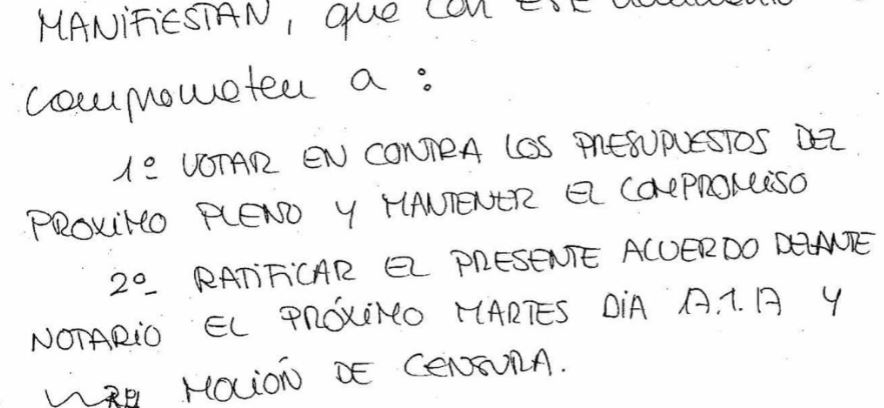 MANIFIESTAN, que con este
comprometen a :
1º VOTAR EN CONTRA LOS PRESUPUESTOS DEL
PROXIMO PLENO Y MANTENER EL COMPROMISO
2º RATIFICAR EL PRESENTE ACUERDO DELANTE
NOTARIO EL PRÓXIMO MARTES DIA 17.1.17 Y
MOCIÓN DE CENSURA.